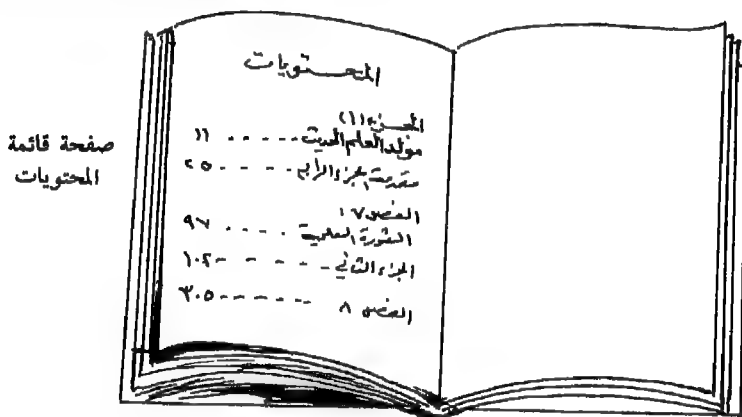 صفحة قائمة
المحتويات
المحتويات
الجزء (١)
مولد العلم الحديث ----- ١١
مقدمة الجزء الرابع ---- ٢٥
الفصل ٧:
الثورة العلمية ---- ٩٧
الجزء الثاني ------ ١٠٢
الفصل ٨ ------- ٣٠٥